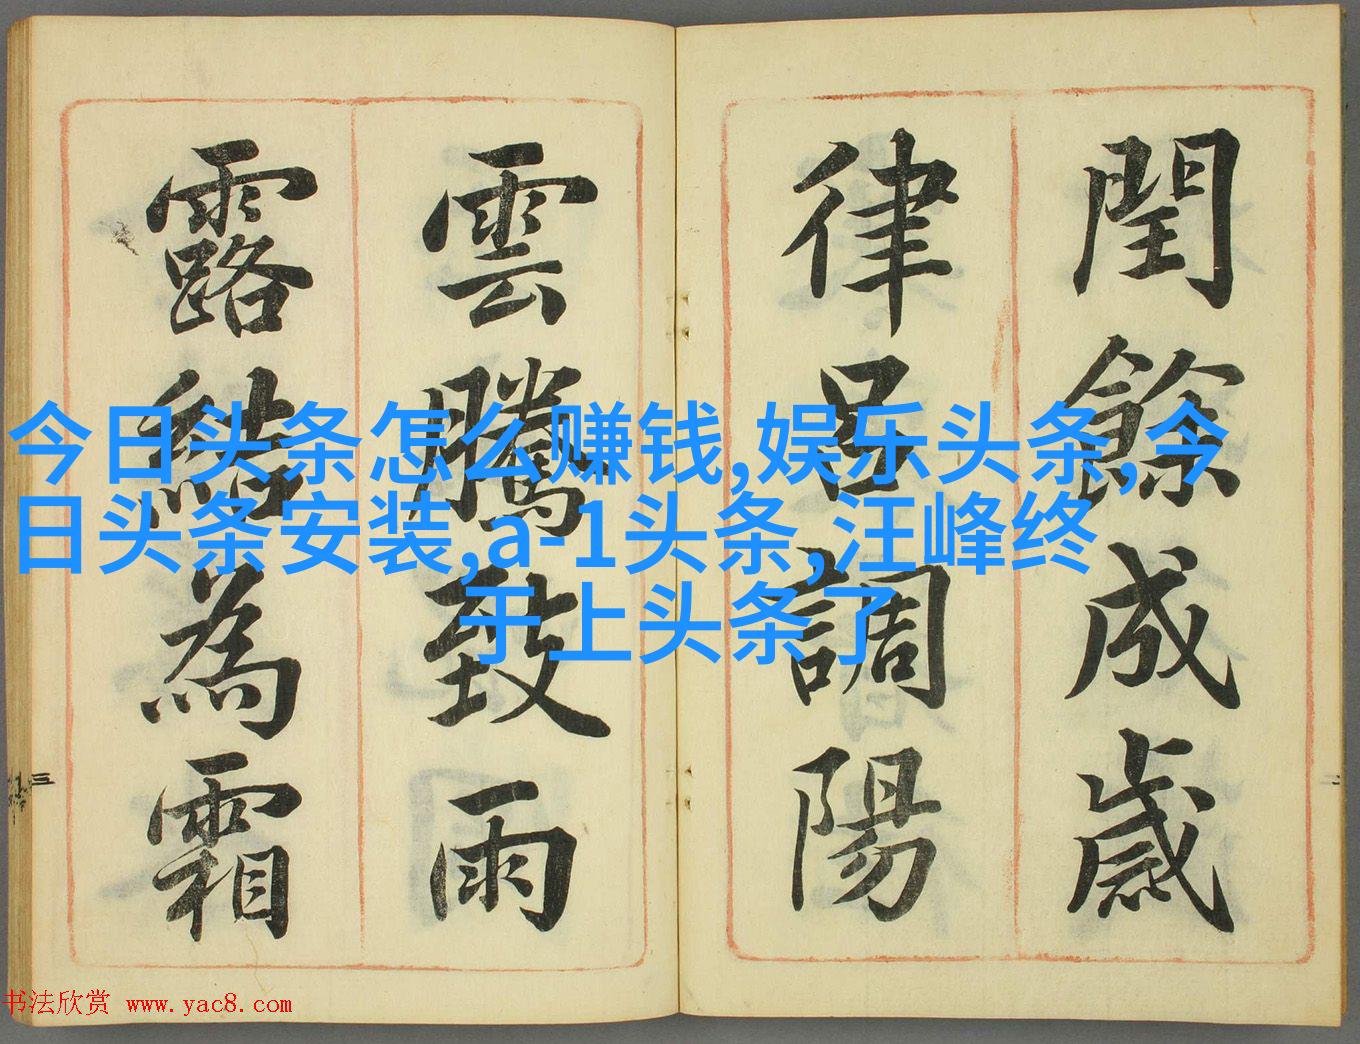 閏餘成歲
律呂調陽
雲騰致雨
露結為霜
今日头条怎么赚钱,娱乐头条,今
日头条安装,a-1头条,汪峰终
于上头条了
三
二
书法欣赏 www.yac8.com